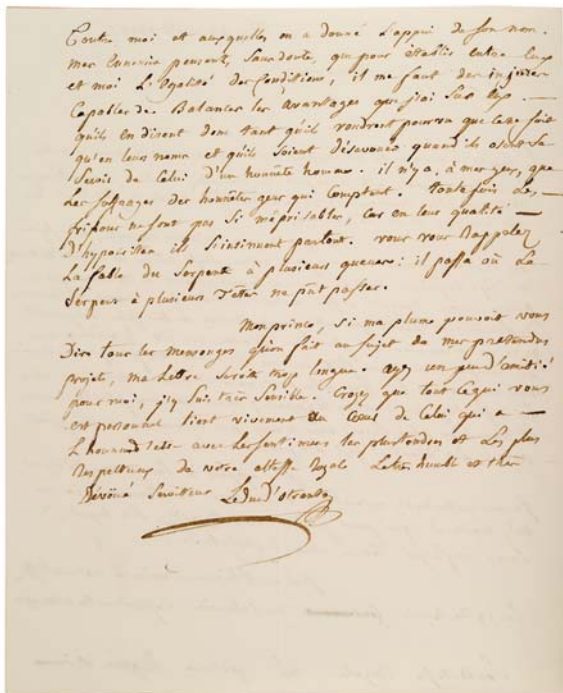 Contre moi et auxquelles on a donné l'appui de son nom.
mes Ennemis pensent, Sans doute, que pour établir entre Eux
et moi L'Egalité des Conditions, il me faut des injures
Capables de Balancer les avantages que j'ai Sur Eux. —
qu'ils en disent donc tant qu'ils voudront pourvu que ce ne soit
qu'en leurs noms et qu'ils soient désavoués quand ils osent se
Servir de Celui d'un honnête homme. il n'y a, à mes yeux, que
Les Suffrages des honnêtes gens qui comptent. toutefois Les —
fripons ne sont pas Si méprisables, Car en leur qualité —
D'hypocrites ils S'insinuent partout. vous vous Rappelez
La fable du Serpent à plusieurs queues: il passa où Le
Serpent à plusieurs Têtes ne put passer.
Mon prince, Si ma plume pouvoit vous
Dire tous les mensonges qu'on fait au sujet de mes prétendus
projets, ma Lettre Seroit trop longue. ayez un peu d'amitié
pour moi, j'y Suis très Sensible. Croyez que tout Ce qui vous
est personnel tient vivement au Cœur de Celui qui a —
L'honneur d'être avec Les Sentimens les plus tendres et Les plus
Respectueux de votre altesse Royale Le très humble et très
Dévoué Serviteur Le duc d'otrante